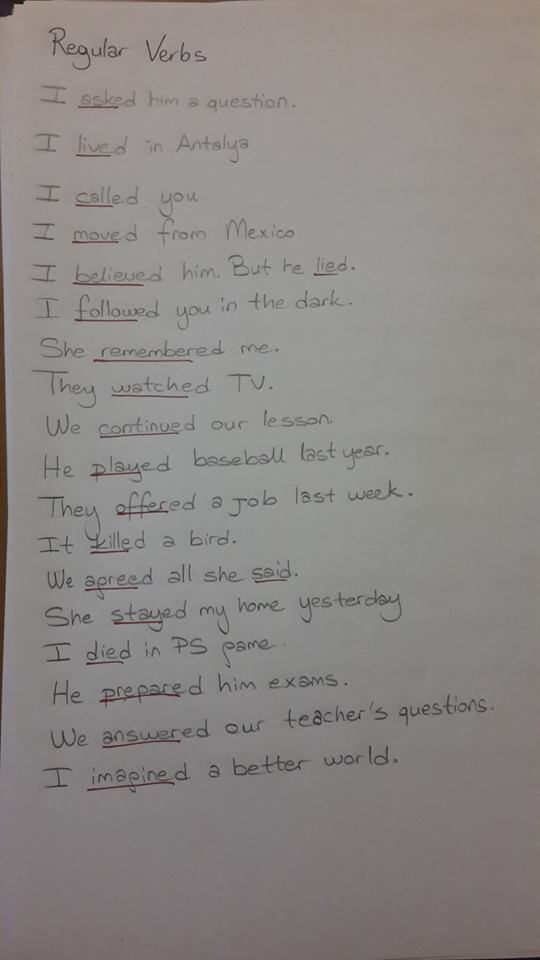 Regular Verbs
I asked him a question.
I lived in Antalya
I called you.
I moved from Mexico.
I believed him. But he lied.
I followed you in the dark.
She remembered me.
They watched TV.
We continued our lesson.
He played baseball last year.
They offered a job last week.
It killed a bird.
We agreed all she said.
She stayed my home yesterday
I died in PS game.
He prepared him exams.
We answered our teacher's questions.
I imagined a better world.